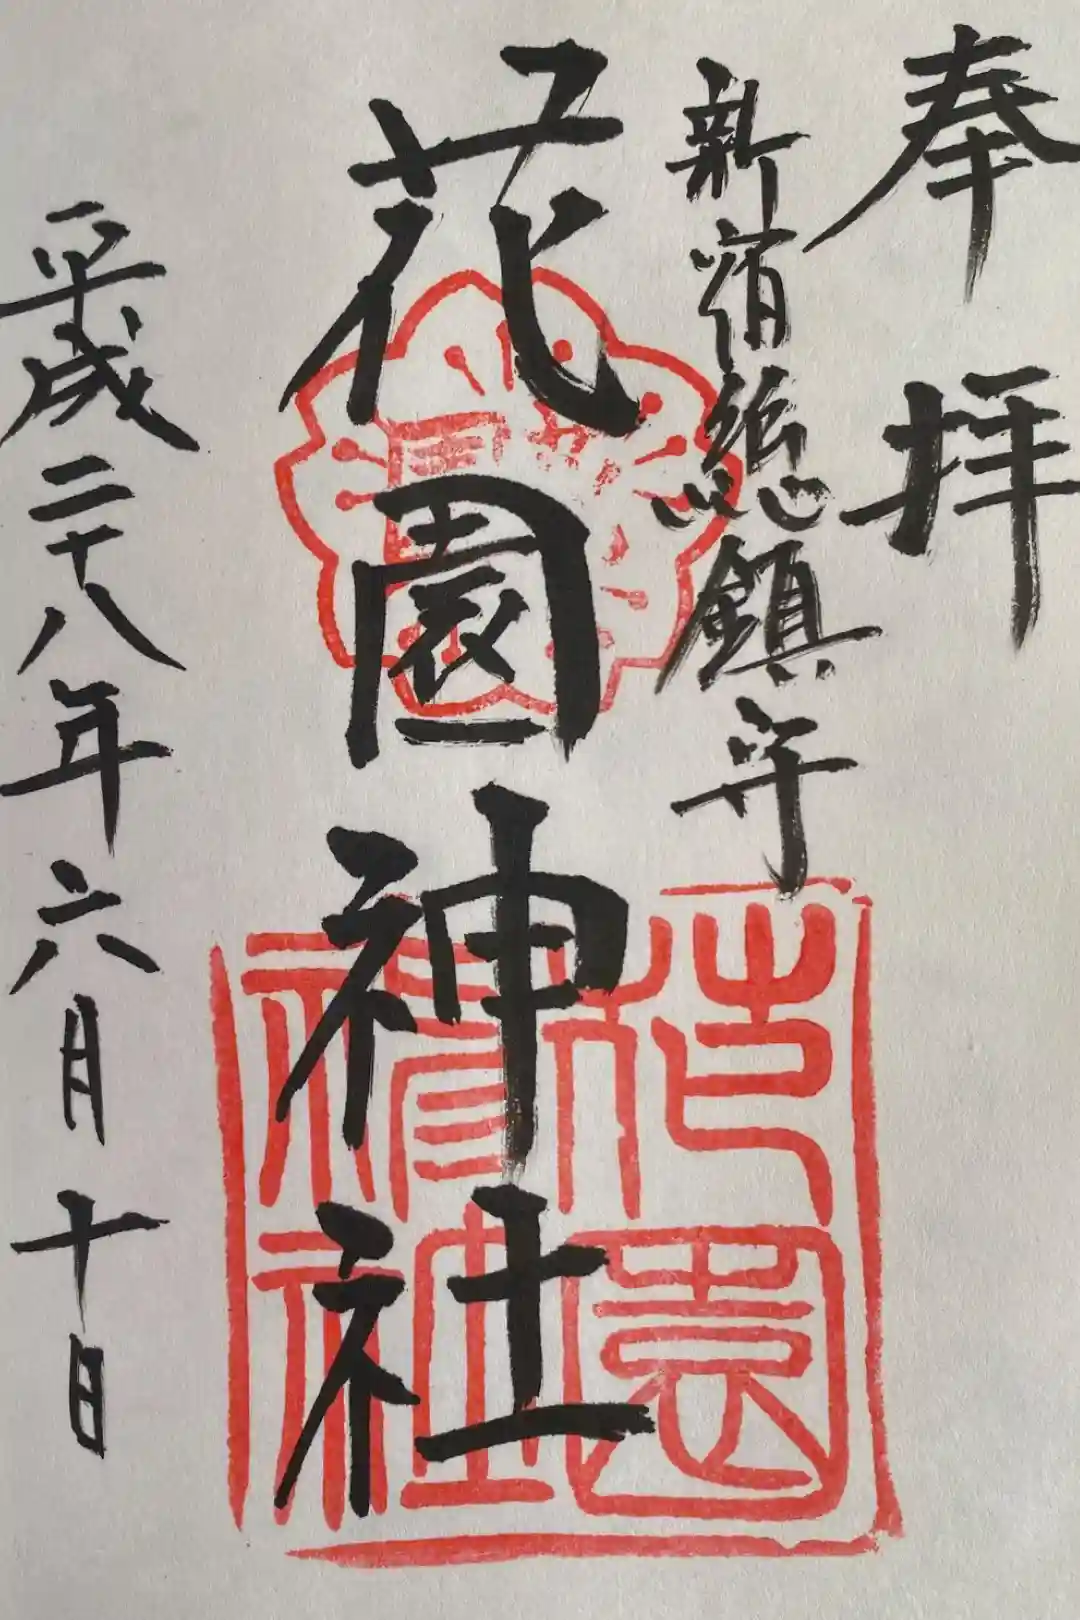 奉拝
新宿總鎮守
花園神社
花園神社
平成二十八年六月十日